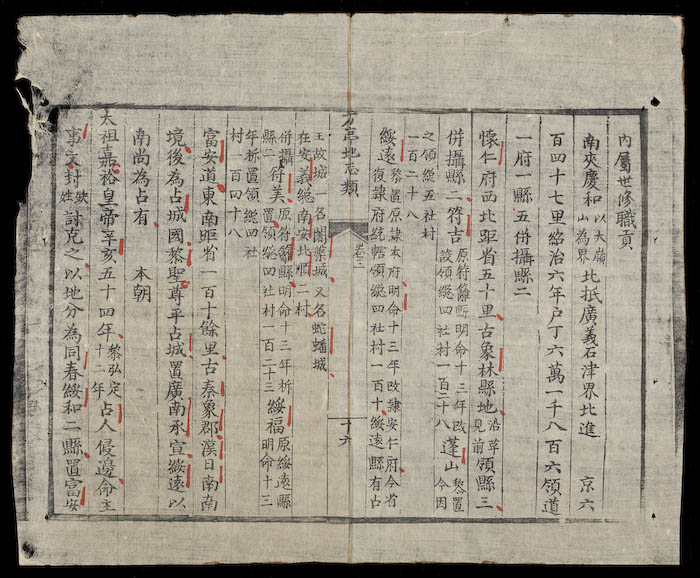 內屬世修職貢
南夾慶和以大嶺山為界北抵廣義石津界北進　京六
百四十七里紹治六年户丁六萬一千八百六領道
一府一縣五併攝縣二
懷仁府西北距省五十里古象林縣地沿革見前領縣三
併攝縣二符吉原符籬縣明命十三年改設領總四社村一百二十八蓬山黎置今因
之領總五社村一百二十八
綏遠黎置原隷本府明命十三年改隷安仁府今省復隷府統轄領總四社村一百十綏遠縣有古
方亭地志類
卷三
十六
王故城一名闍槃城又名蛇蟠城在安義總南安北順二村
併攝縣二符美原符籬縣明命十三年析置領總四社村一百二十三綏福原綏遠縣明命十三
年析置領總四社村一百四十八
富安道東南距省一百十餘里古秦象郡漢日南南
境後為占城國黎聖尊平占城置廣南承宣綏遠以
南尚為占有　本朝
太祖嘉裕皇帝辛亥五十四年黎弘定十二年占人侵邊命主
事文封缺姓討克之以地分為同春綏和二縣置富安